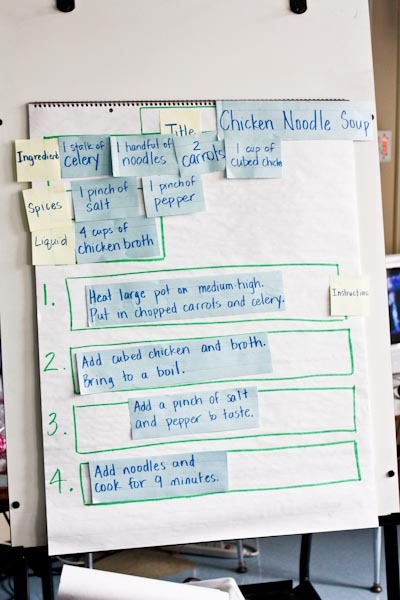 Title
Chicken Noodle Soup
Ingredient
1 stalk of
celery
1 handful of
noodles
2
carrots
1 cup of
cubed chicke
Spices
1 pinch of
salt
1 pinch of
pepper
Liquid
4 cups of
chicken broth
Instructions
1.
Heat large pot on medium-high.
Put in chopped carrots and celery.
2.
Add cubed chicken and broth.
Bring to a boil.
3.
Add a pinch of salt
and pepper to taste.
4.
Add noodles and
cook for 9 minutes.